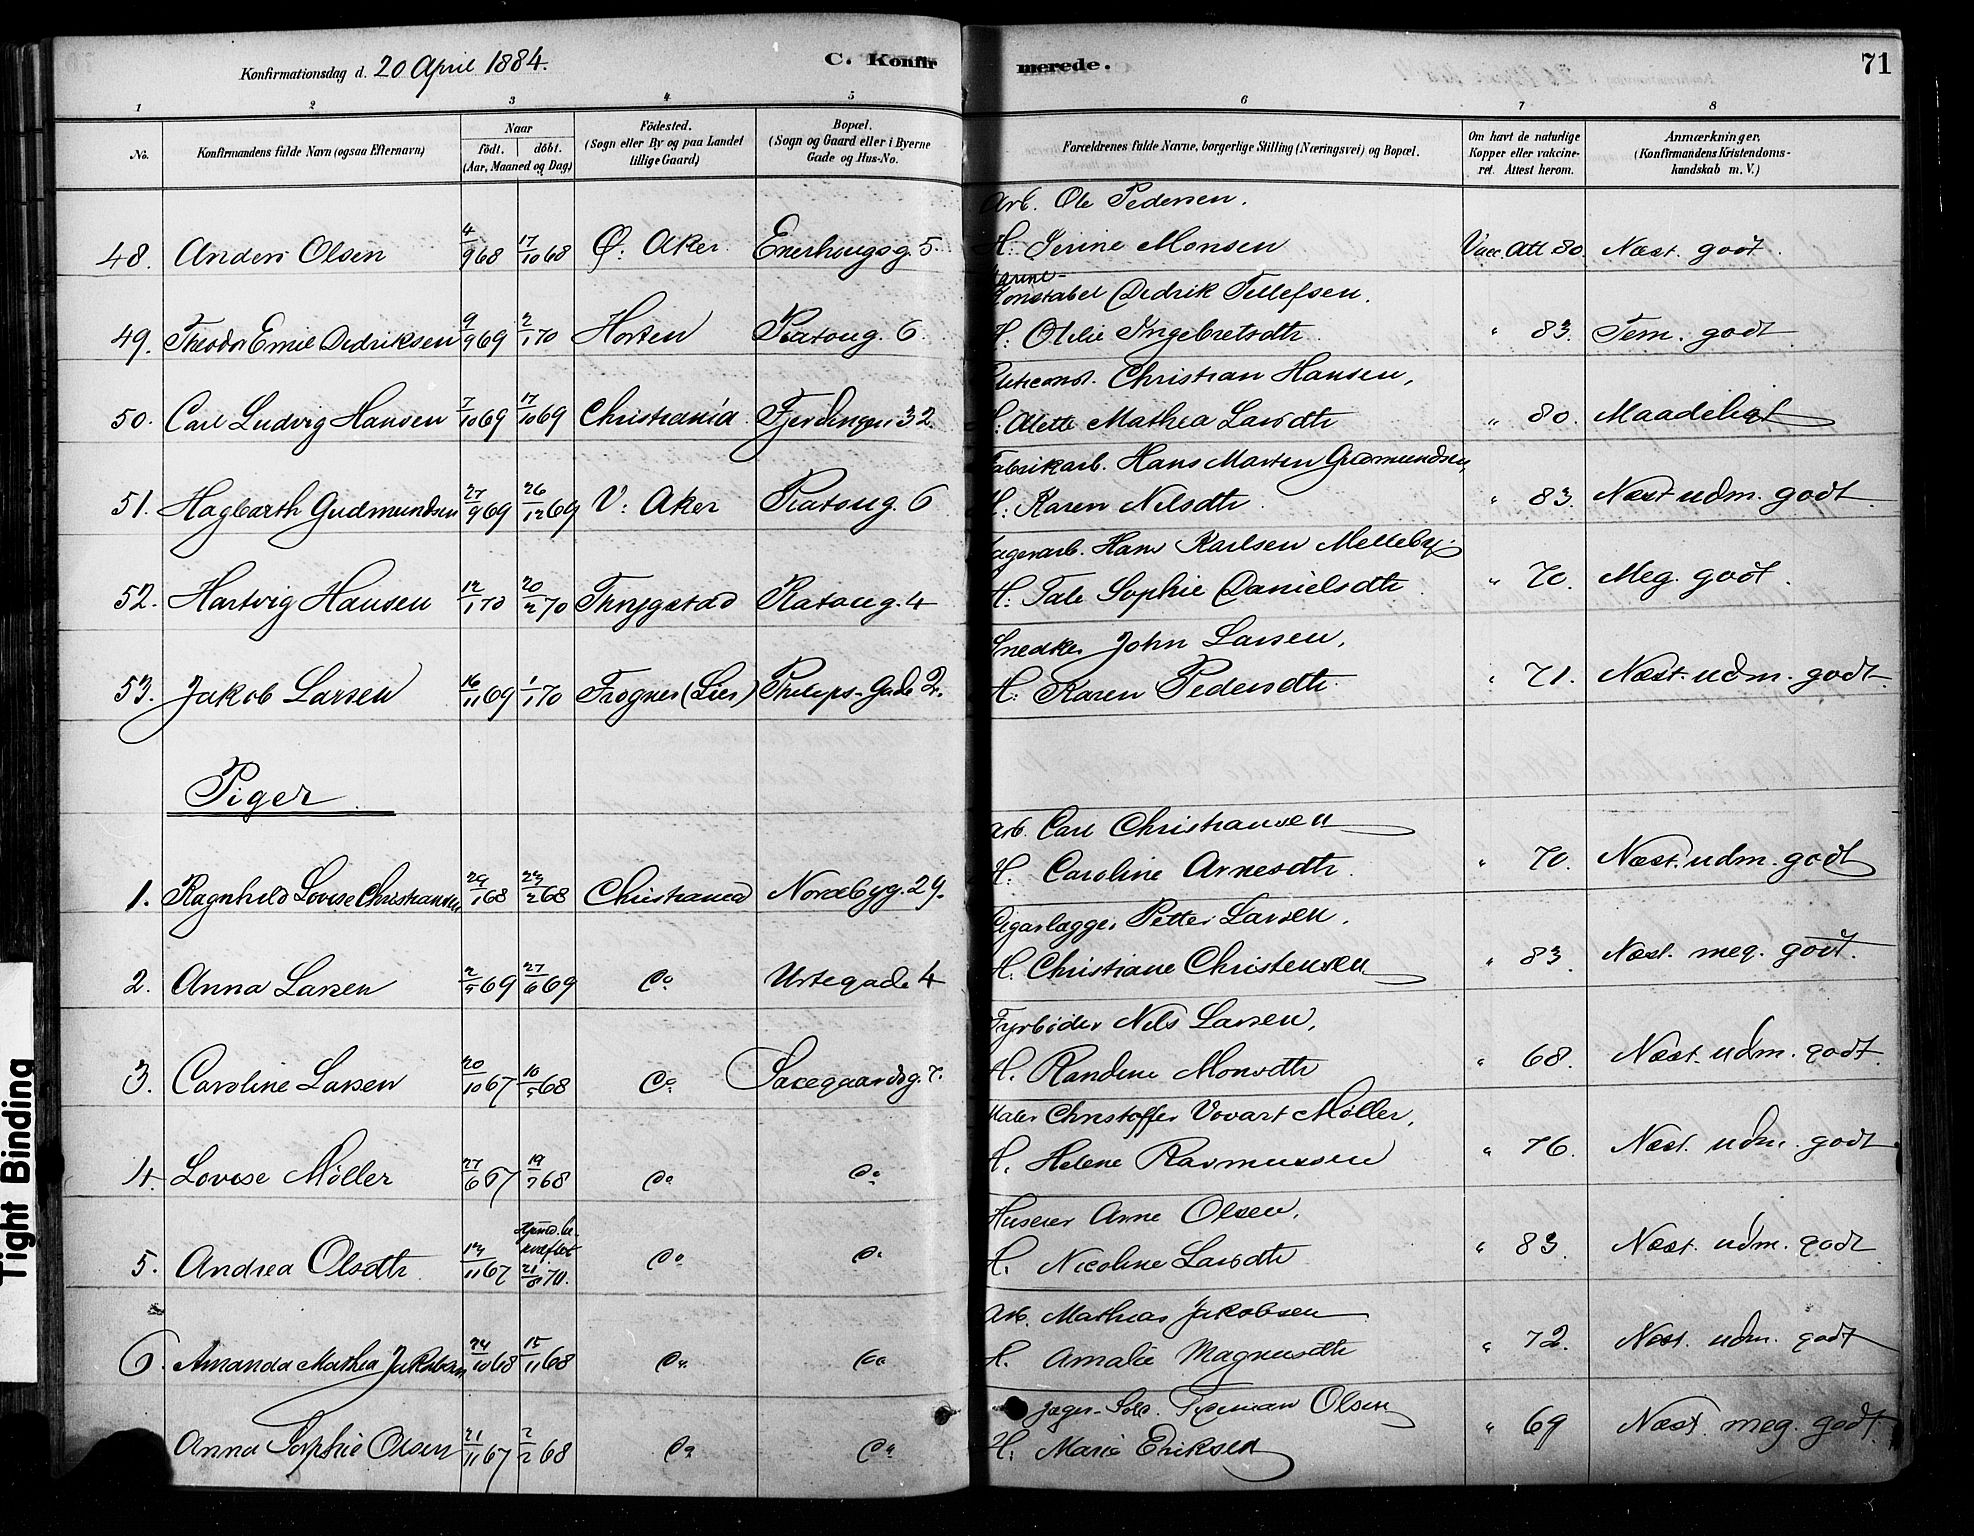 Konfirmationsdag d. 20 April 1884. C. Konfir merede. 71
1 2 3 4 5 6 7 8
No. Konfirmandens fulde Navn (ogsaa Efternavn) Naar født. døbt. (Aar, Maaned og Dag) Fødested. (Sogn eller By og paa Landet tillige Gaard) Bopæl. (Sogn og Gaard eller i Byerne Gade og Hus-No. Forældrenes fulde Navne, borgerlige Stilling (Næringsvei) og Bopæl. Om havt de naturlige Kopper eller vakcineret. Attest herom. Anmærkninger. (Konfirmandens Kristendomskundskab m. V.)
Arb. Ole Pedersen.
48. Anders Olsen 4/9 68 17/10 68 Ø: Aker Enerhougsg. 5 H: Serine Monsen Vacc. Att 80. Næst. godt.
Marine-
Konstabel Dedrik Tellefsen.
49. Theodor Emil Dedriksen 9/9 69 2/1 70 Horten Platoug. 6 H. Otilie Ingebretsdtr. " 83. Tem. godt
Christian Hansen,
50. Carl Ludvig Hansen 7/10 69 17/10 69 Christiania Fjerdingen 32 H. Alette Mathea Larsdtr " 80. Maadeligt
Fabrikarb. Hans Morten Gudmundsen,
51. Hagbarth Gudmundsen 27/9 69 26/12 69 V: Aker Platoug. 6 H: Karen Nilsdtr " 83. Næst udm. godt.
Lagerarb. Hans Karlsen Melleby.
52. Hartvig Hansen 12/1 70 20/2 70 Thrygstad Platoug. 4 H: Tale Sophie Danielsdtr " 70. Meg. godt.
Snedker John Larsen,
53. Jakob Larsen 16/11 69 1/1 70 Frogner (Lier) Philips-Gade 2. H: Karen Pedersdtr. " 71. Næst. udm. godt.
Piger.
Arb. Carl Christiansen
1. Ragnhild Lovise Christiansen 29/1 68 23/2 68 Christiania Nordbyg. 29. H. Caroline Arnesdtr. " 70. Næst. udm. godt
Cigarlægger Petter Larsen.
2. Anna Larsen 2/5 69 27/6 69 do Urtegade 4 H. Christiane Christensen " 83. Næst. meg. godt.
Fyrbøder Nils Larsen,
3. Caroline Larsen 20/10 67 10/5 68 do Saxegaardsg. 7. H. Randine Monsdtr " 68. Næst. udm. godt.
Maler Christoffer Vovart Møller,
4. Lovise Møller 27/6 67 19/7 68 do do H. Helene Rasmussen " 76. Næst. udm. godt
Huseier Arne Olsen.
5. Andrea Olsdtr 13/11 67 Hjemd. bekræftet 21/8 70. do do H. Nicoline Larsdtr " 83. Næst. udm. godt
Arb. Mathias Jakobsen
6. Amanda Mathea Jakobsen 24/10 68 15/11 68 do do H. Amalie Magnusdtr " 72. Næst. udm. godt
Jæger-Sold. Olsen
Anna Sophie Olsen 21/11 67 2/2 68 do do H: Marie Eriksen " 69 Næst. meg. godt.
Tight Binding